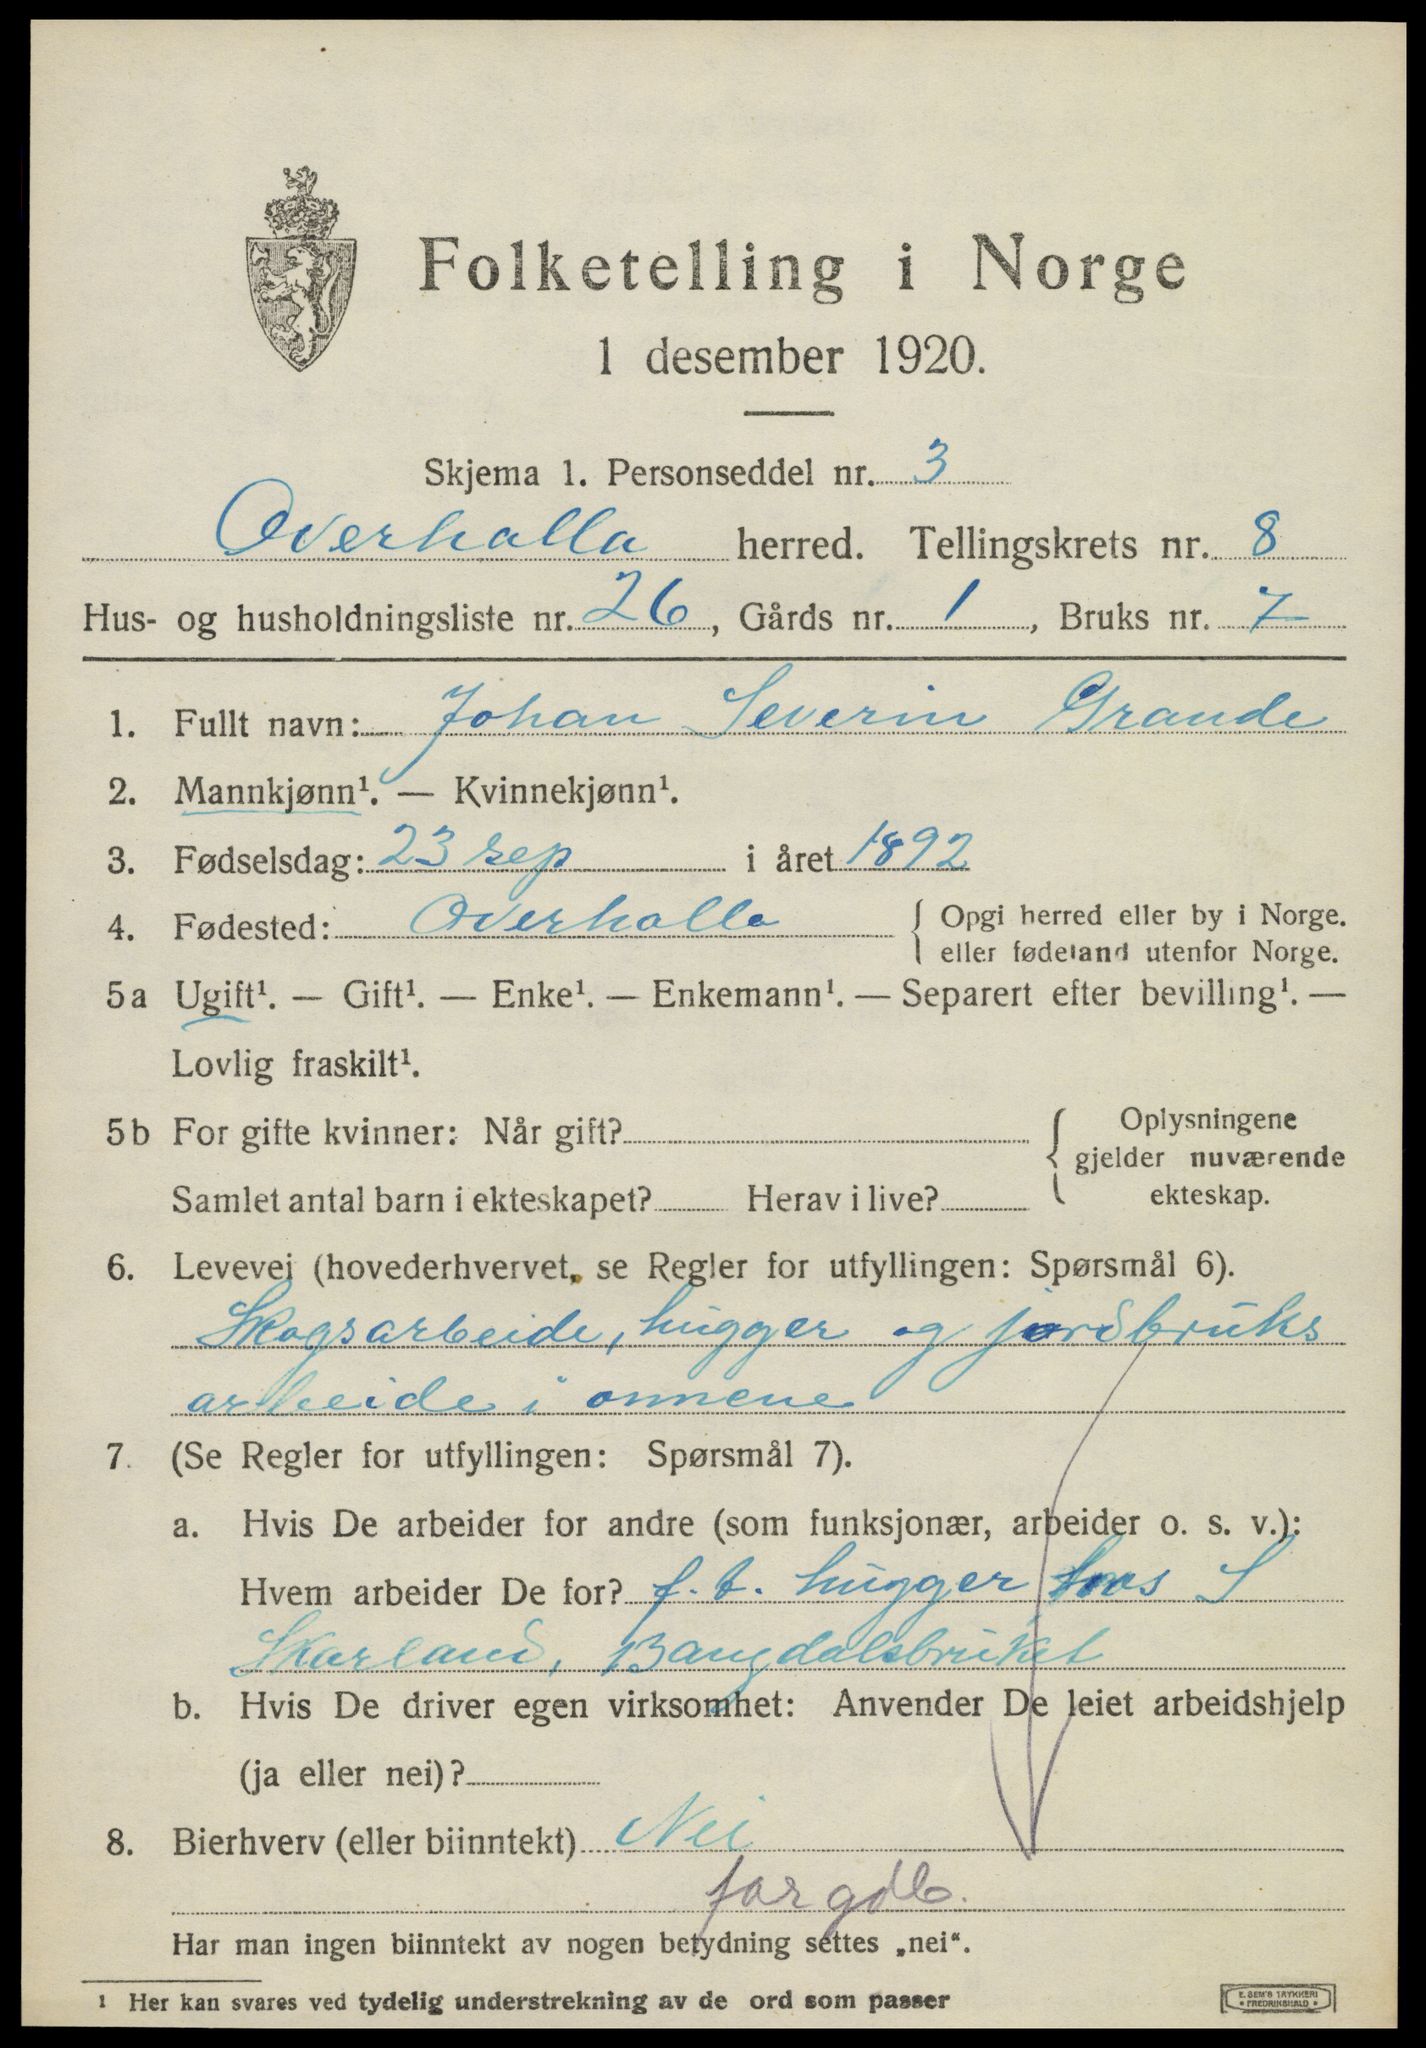 Folketelling i Norge
1 desember 1920.
Skjema 1. Personseddel nr. 3
Overhalla herred. Tellingskrets nr. 8
Hus- og husholdningsliste nr. 26, Gårds nr. 1, Bruks nr. 7
1. Fullt navn: Johan Severin Grande
2. Mannkjønn¹. — Kvinnekjønn¹.
3. Fødselsdag: 23 sep i året 1892
4. Fødested: Overhalla { Opgi herred eller by i Norge.
eller fødeland utenfor Norge.
5a Ugift¹. — Gift¹. — Enke¹. — Enkemann¹. — Separert efter bevilling¹. —
Lovlig fraskilt¹.
5b For gifte kvinner: Når gift? { Oplysningene
gjelder nuværende
Samlet antal barn i ekteskapet? Herav i live? ekteskap.
6. Levevei (hovederhvervet, se Regler for utfyllingen: Spørsmål 6).
Skogsarbeide, hugger og jordbruks
arbeide i onnene
7. (Se Regler for utfyllingen: Spørsmål 7).
a. Hvis De arbeider for andre (som funksjonær, arbeider o. s. v.):
Hvem arbeider De for? f.t. hugger hos S
Skarland, Bangdalsbruket
b. Hvis De driver egen virksomhet: Anvender De leiet arbeidshjelp
(ja eller nei)?
8. Bierhverv (eller biinntekt) Nei
for gdb.
Har man ingen biinntekt av nogen betydning settes „nei“.
1 Her kan svares ved tydelig understrekning av de ord som passer
E. SEM'S TRYKKERI
• FREDRIKSHALD •